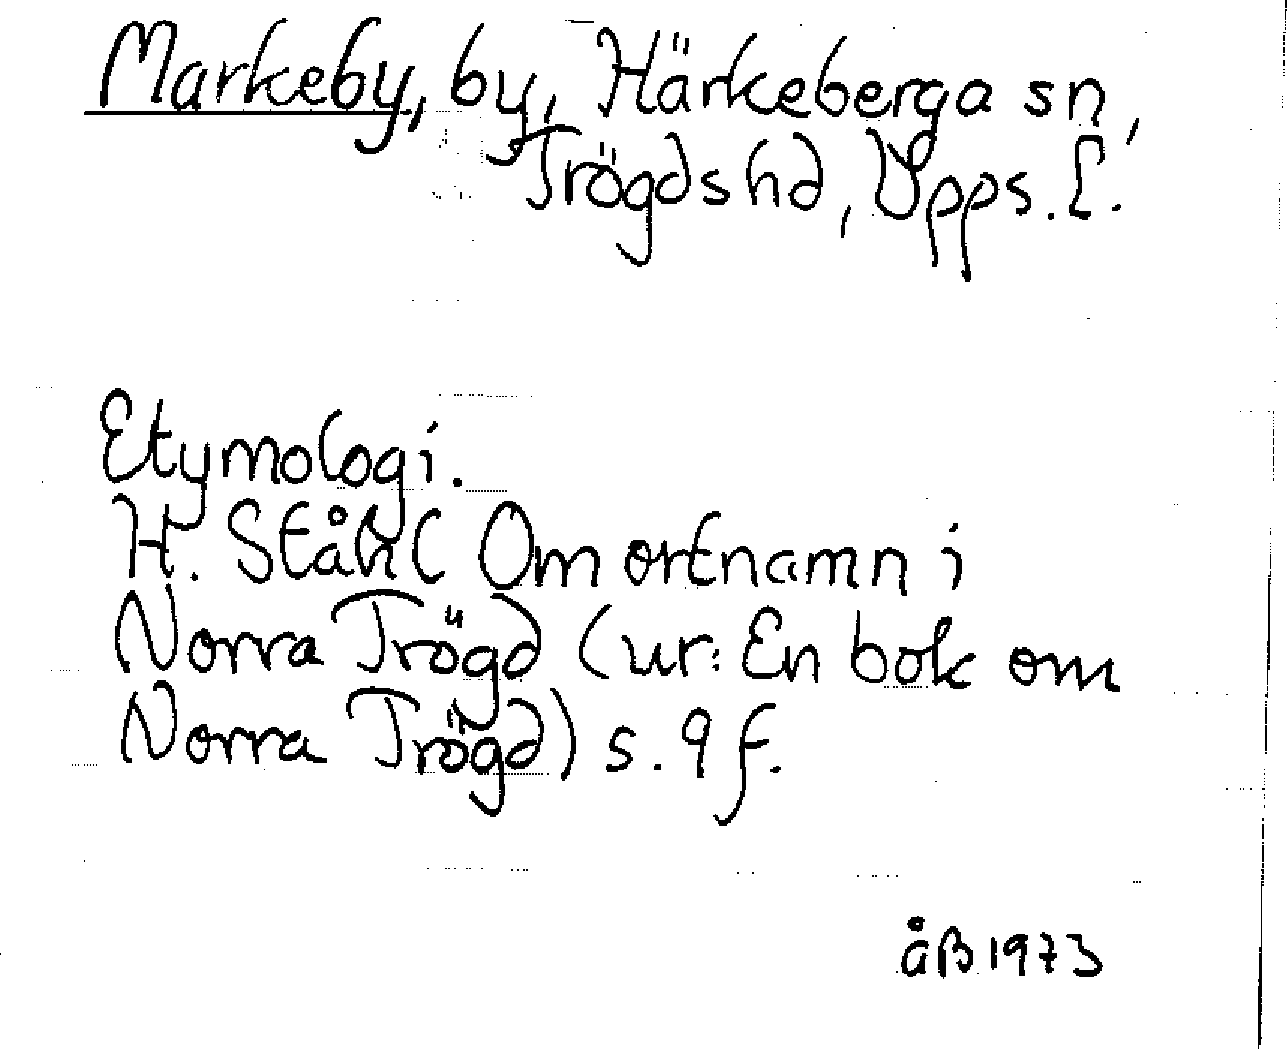 Markeby, by, Härkeberga sn,
Trögds hd, Upps. l.
Etymologi.
H. Ståhl Om ortnamn i
Norra Trögd (ur: En bok om
Norra Trögd) s. 9 f.
åB 1973